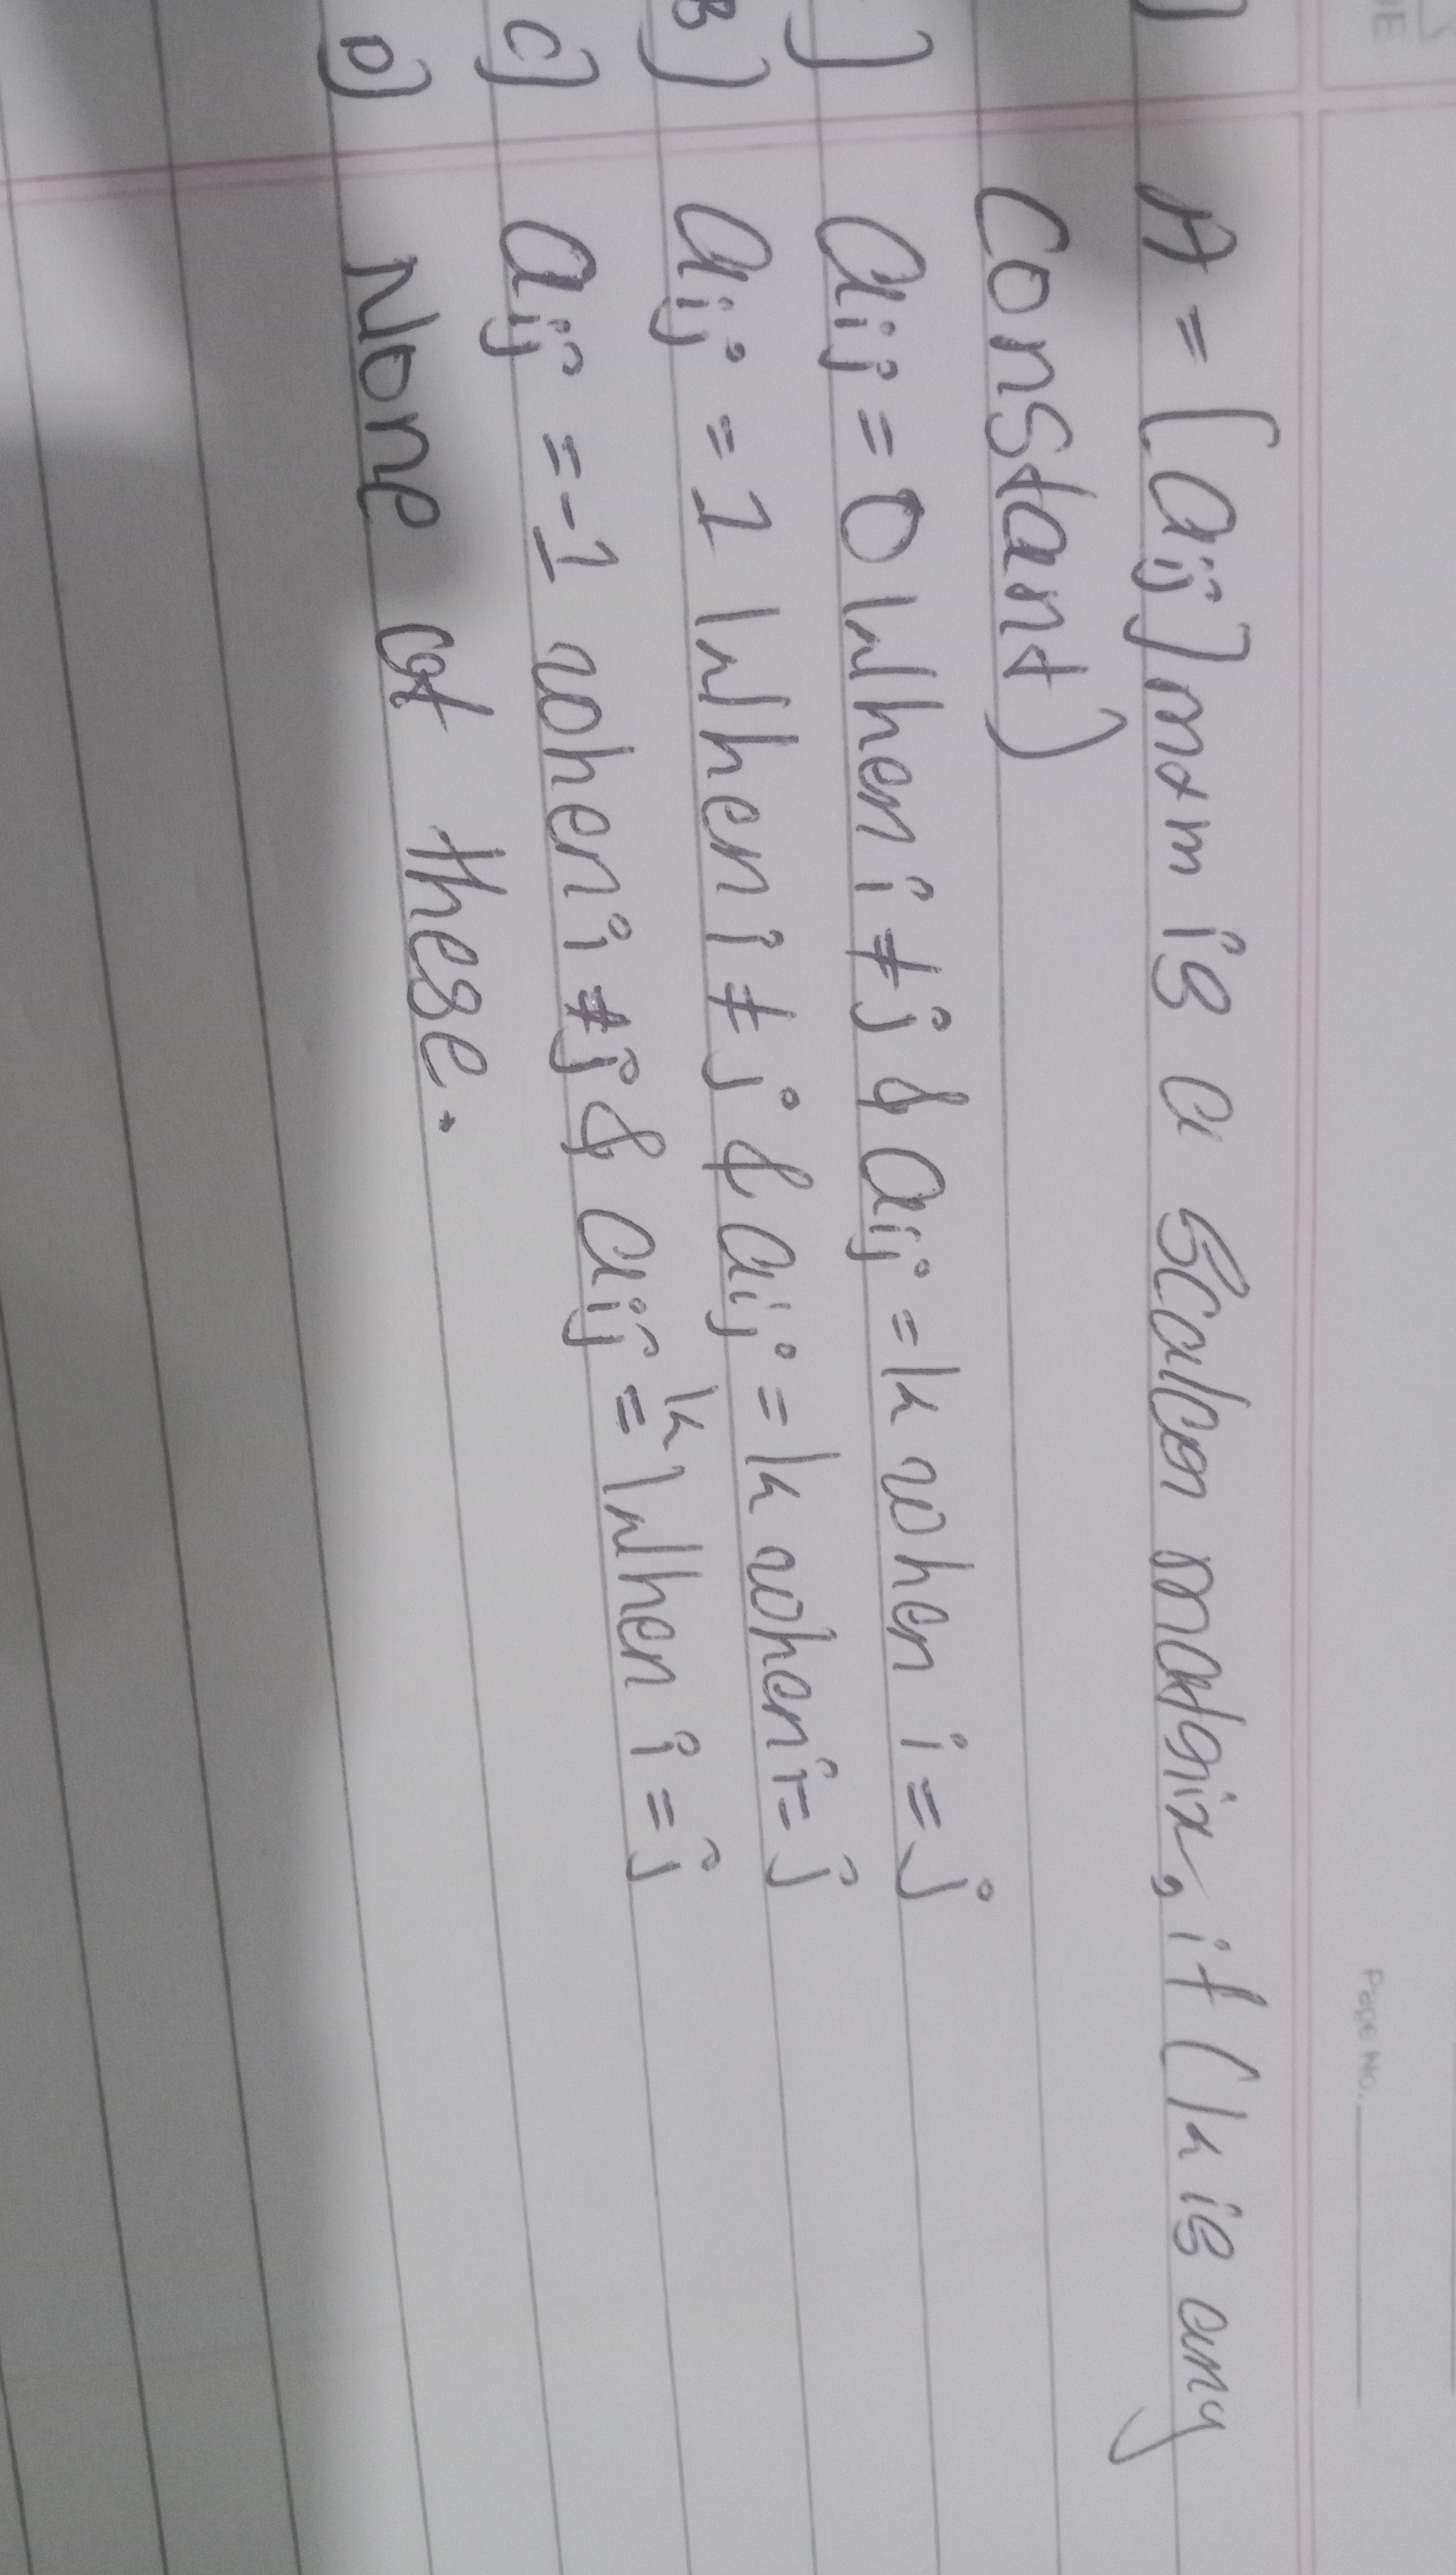 Page No.
A = [aij]m×m is a scalar matrix, if (k is any
constant)
aij = 0 when i ≠ j & aij = k when i = j
B] aij = 1 when i ≠ j & aij = k when i = j
C] aij = -1 when i ≠ j & aij = k when i = j
D] None of these.